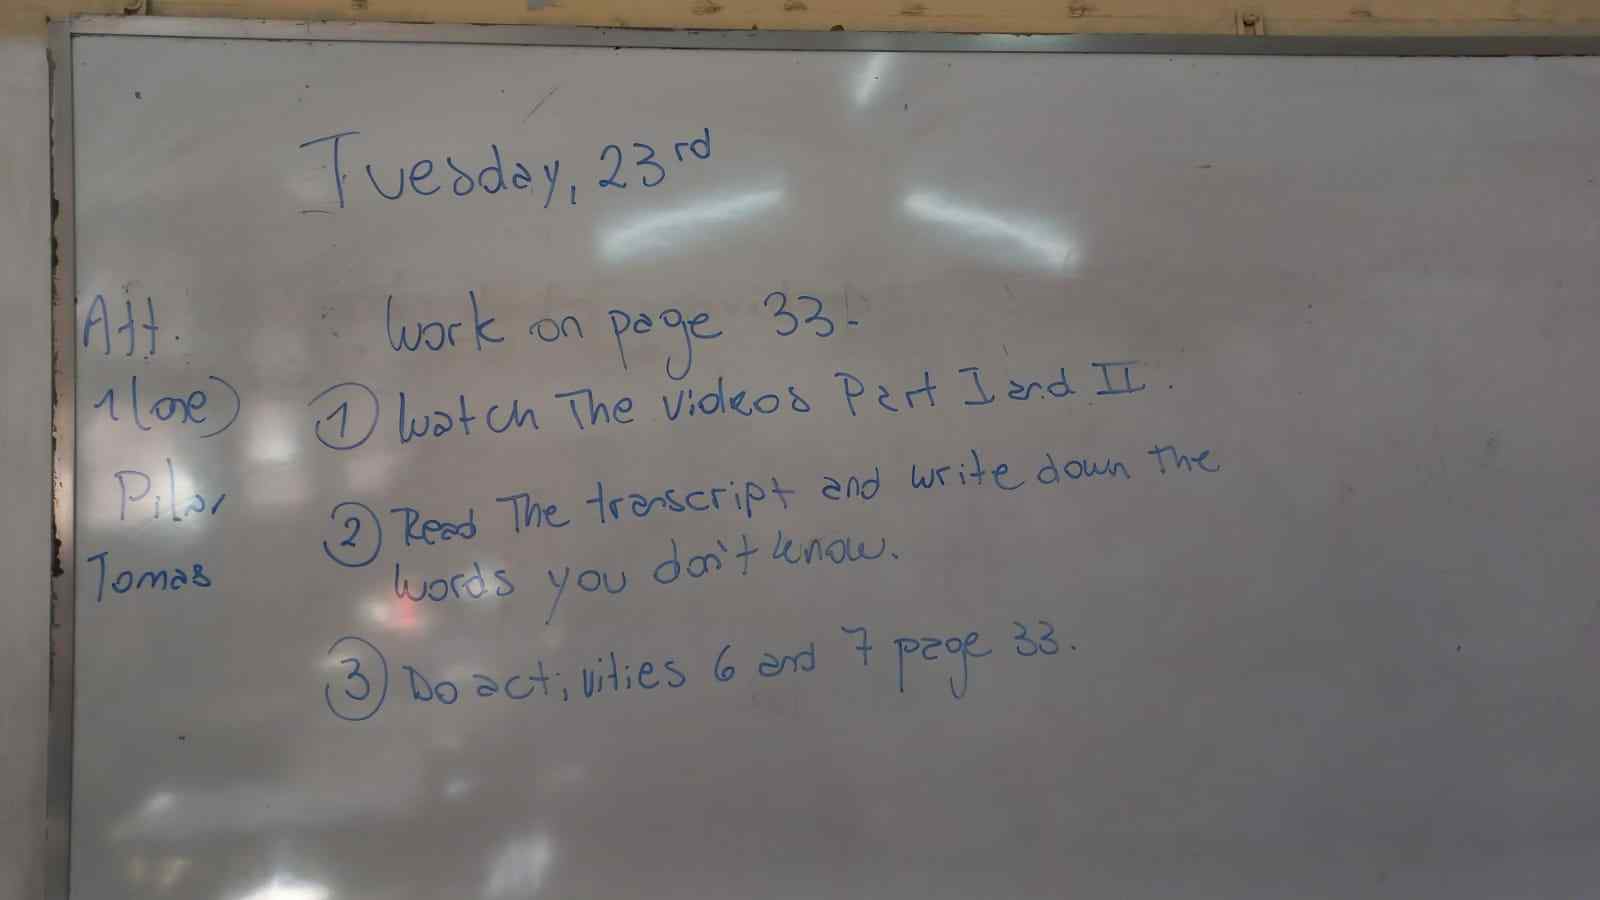 Tuesday, 23rd
Att.
1 (one)
Pilar
Tomas
Work on page 33.
1 Watch The videos Part I and II.
2 Read The transcript and write down the
words you don't know.
3 Do activities 6 and 7 page 33.